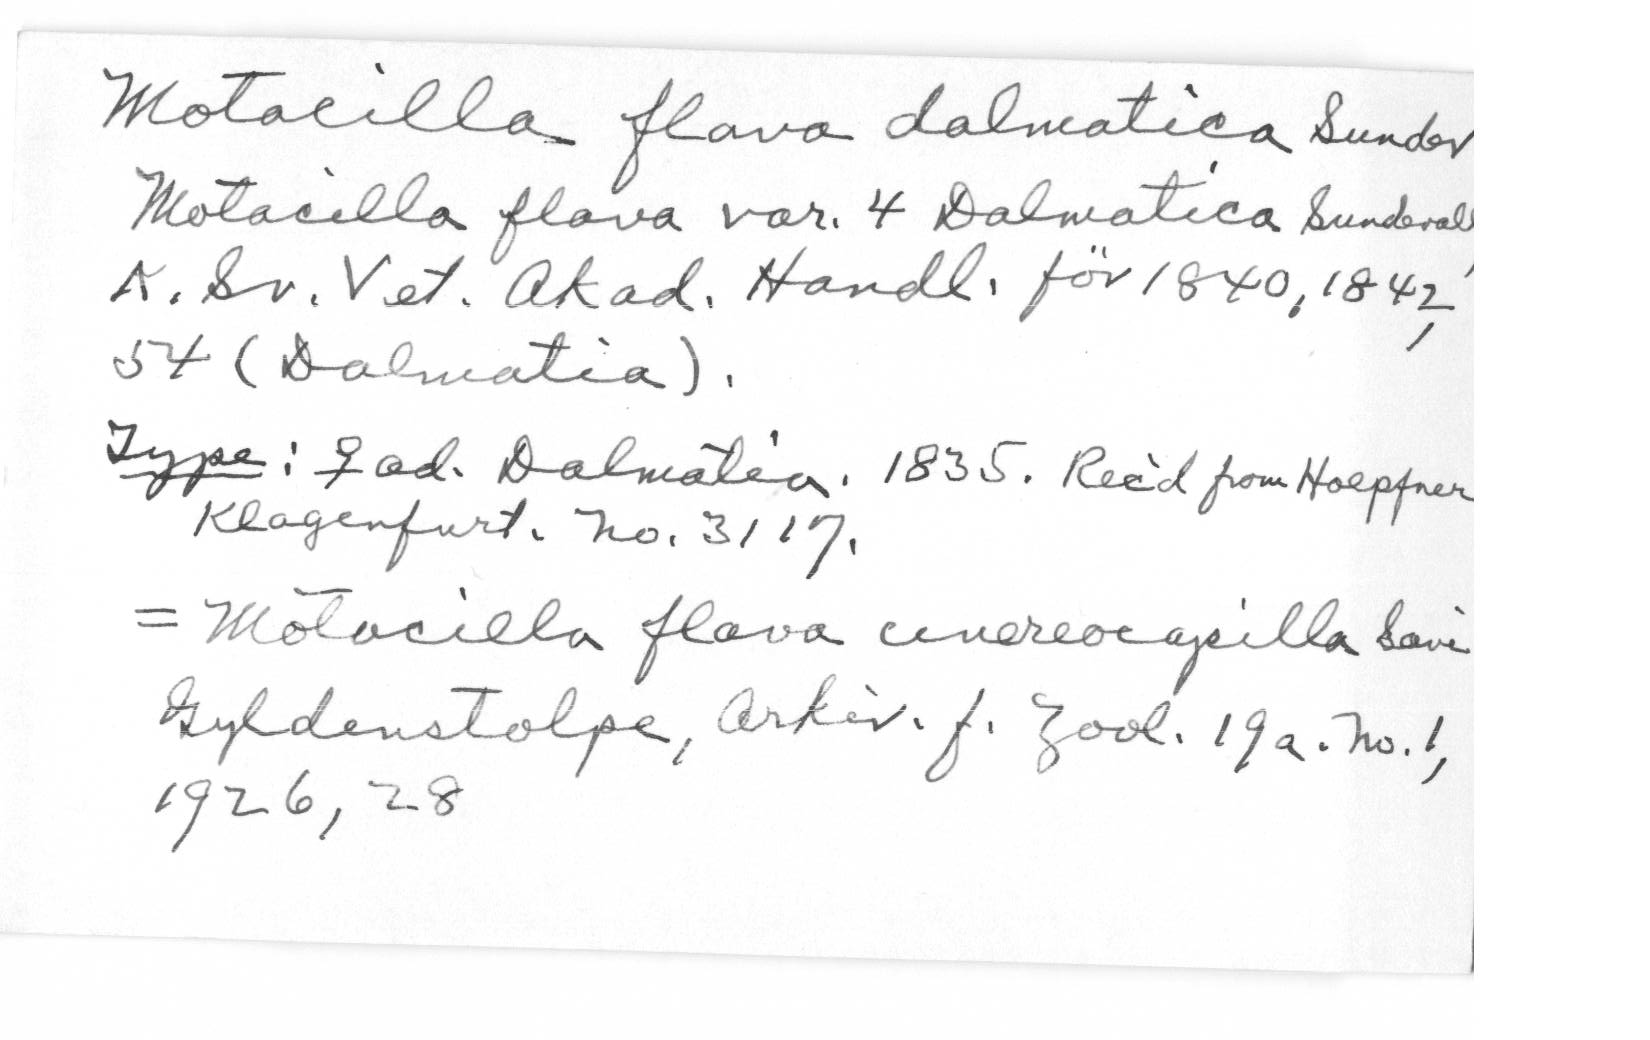 Motacilla flava dalmatica Sundev
Motacilla flava var. 4 Dalmatica Sundevall,
K. Sv. Vet. Akad. Handl. för 1840, 1842,
54 (Dalmatia).
Type: ♀ ad. Dalmatia. 1835. Rec'd from Hoepfner
Klagenfurt. No. 3117.
= Motacilla flava cinereocapilla Savi
Gyldenstolpe, Arkiv. f. Zool. 19a. No. 1,
1926, 28